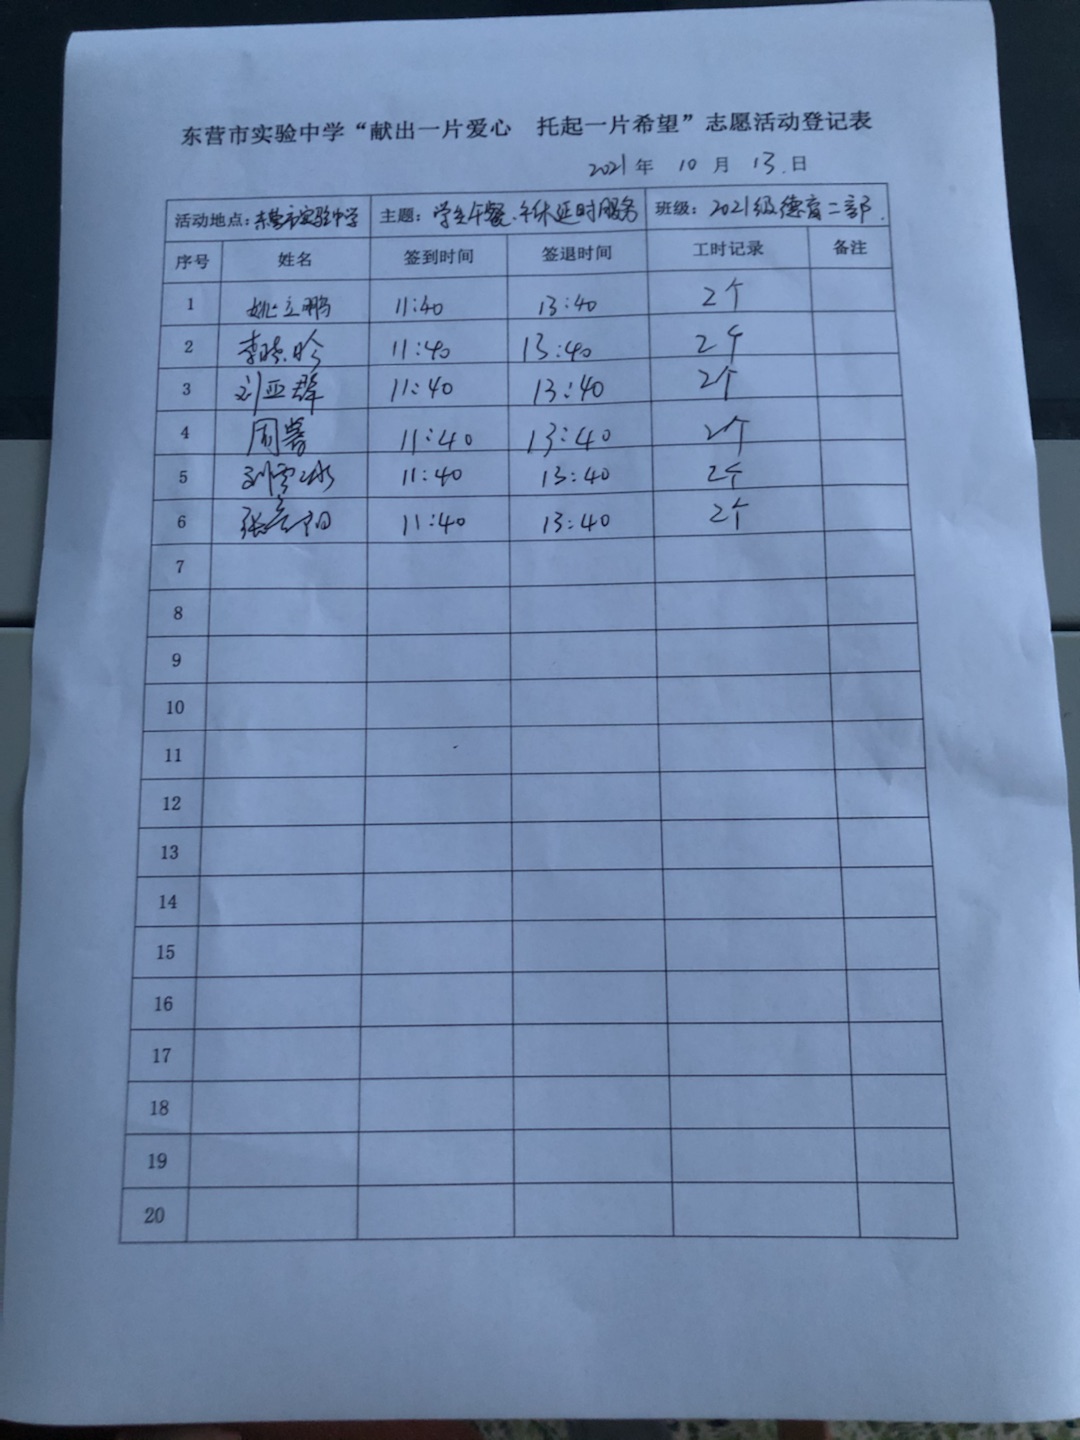 东营市实验中学“献出一片爱心 托起一片希望”志愿活动登记表
2021年 10月 13日
活动地点:东营市实验中学 主题:学生午餐、午休延时服务 班级:2021级德育二部.
序号 姓名 签到时间 签退时间 工时记录 备注
1 姚立鹏 11:40 13:40 2个
2 李 11:40 13:40 2个
3 刘亚群 11:40 13:40 2个
4 周 11:40 13:40 2个
5 刘雪冰 11:40 13:40 2个
6 张 阳 11:40 13:40 2个
7
8
9
10
11
12
13
14
15
16
17
18
19
20